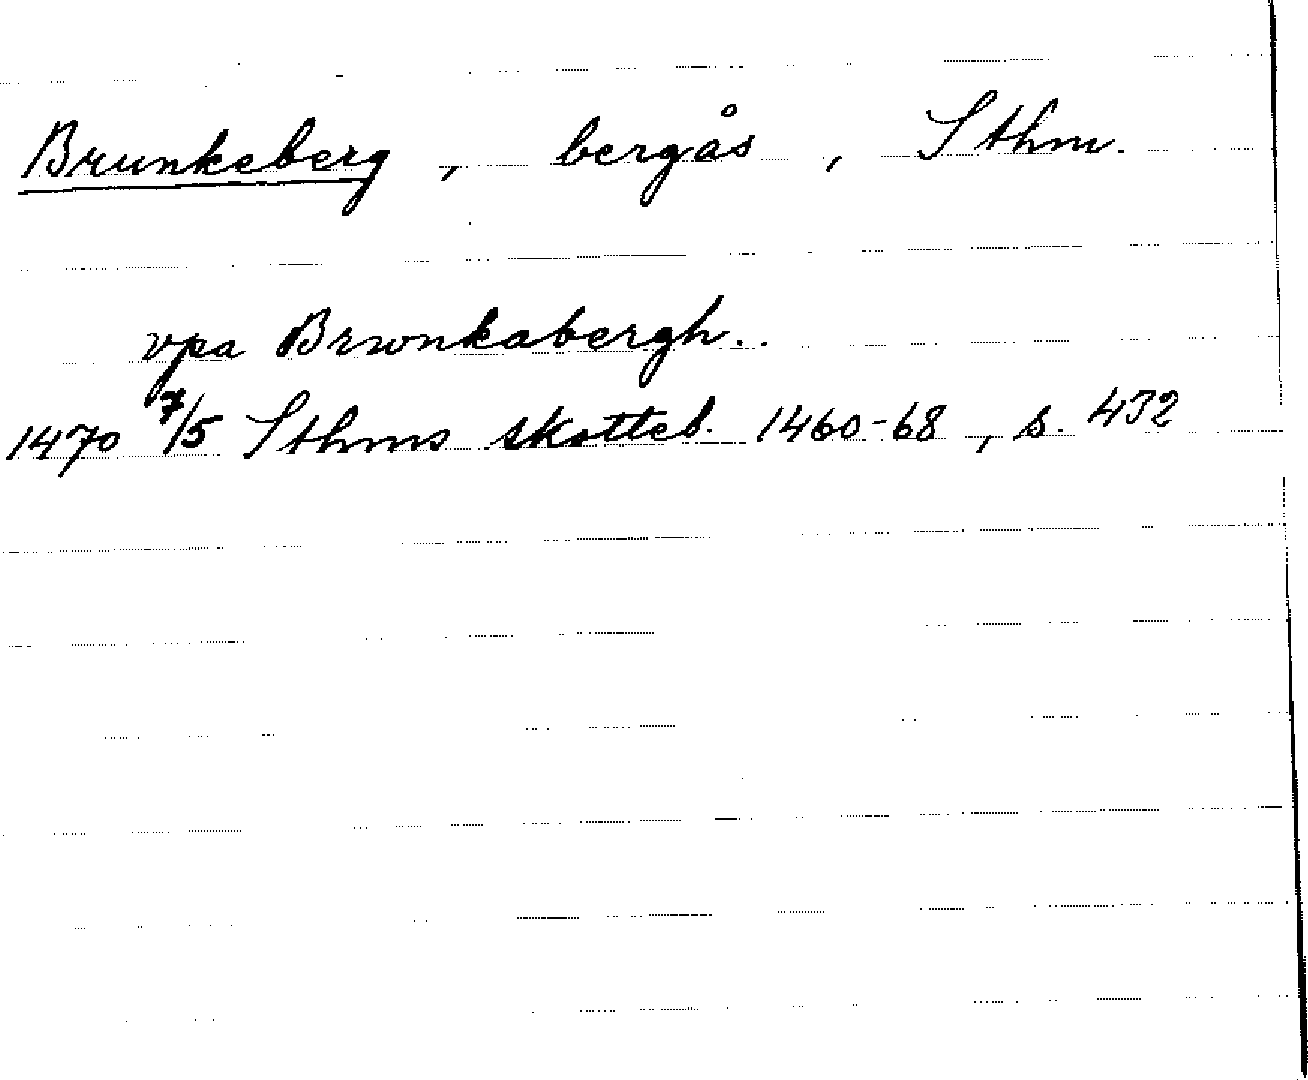 Brunkeberg, bergås, Sthm.
vpa Brwnkabergh..
1470 7/5 Sthms skotteb. 1460-68, s. 432